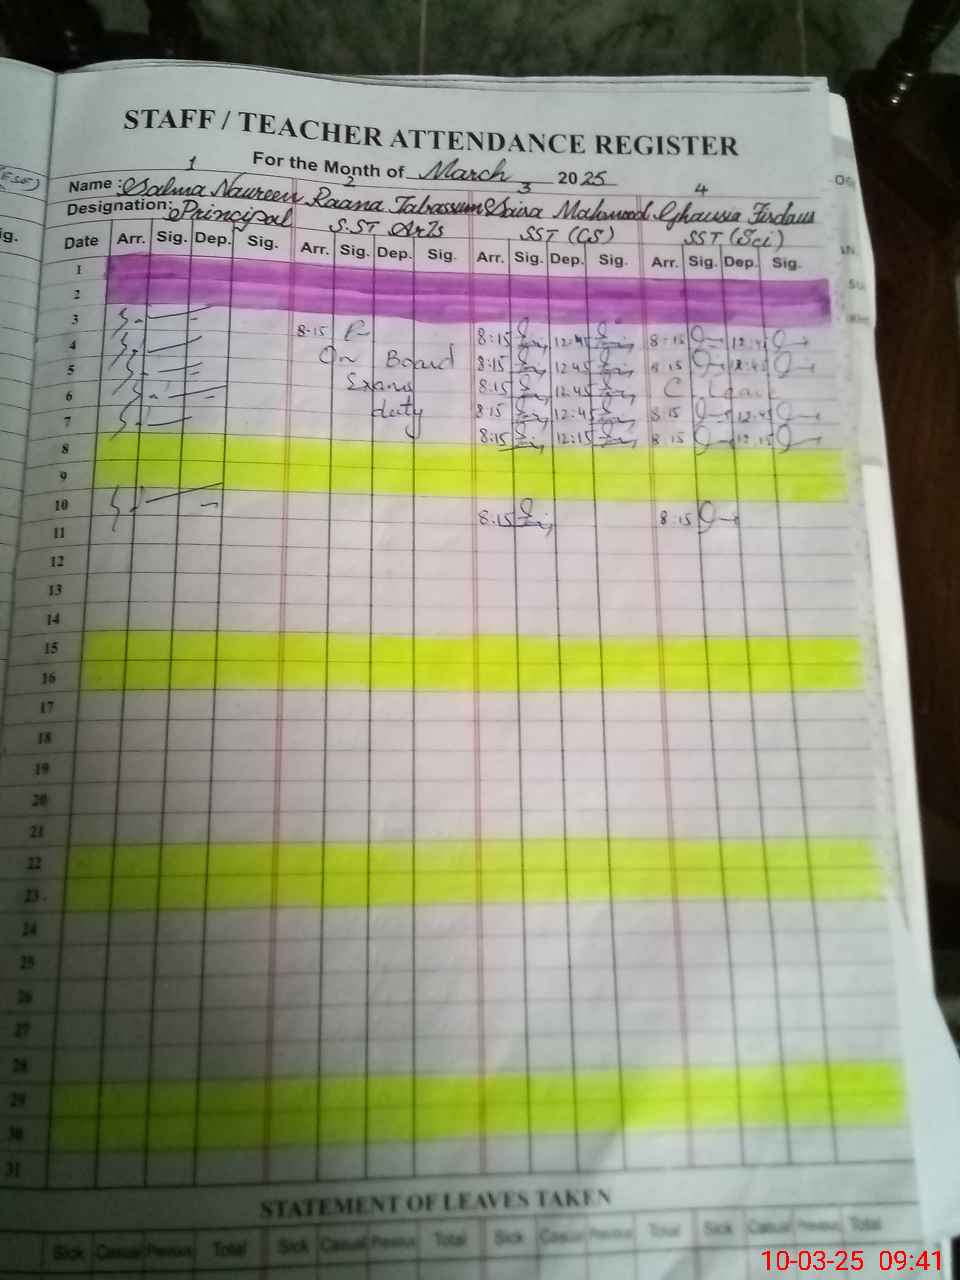 STAFF / TEACHER ATTENDANCE REGISTER
For the Month of March 2025
1 2 3 4
Name: Salma Naureen Raana Tabassum Saira Mahmood Ghausia Firdaus
Designation: Principal S.ST Arts SST (CS) SST (Sci)
Date Arr. Sig. Dep. Sig. Arr. Sig. Dep. Sig. Arr. Sig. Dep. Sig. Arr. Sig. Dep. Sig.
1
2
3 8-15 8:15 12:45 8-15
4 On Board 8:15 12:45 8 15 12:45
5 Exam 8:15 12:45 C Leave
6 duty 8:15 12:45 8:15 12:45
7 8:15 12:15 8 15 12:15
8
9
10 8:15 8:15
11
12
13
14
15
16
17
18
19
20
21
22
23
24
25
26
27
28
29
30
31
STATEMENT OF LEAVES TAKEN
Sick Casual Previous Total Sick Casual Previous Total Sick Casual Previous Total Sick Casual Previous Total
10-03-25 09:41